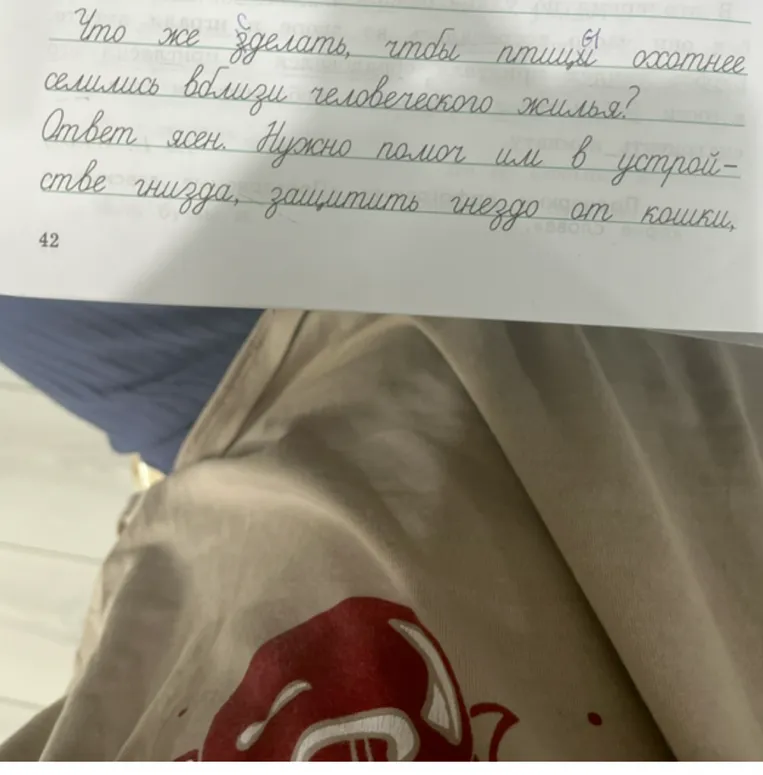 Что же зделать, чтобы птици охотнее
селились вблизи человеческого жилья?
Ответ ясен. Нужно помоч им в устрой-
стве гнизда, защитить гнездо от кошки,
42